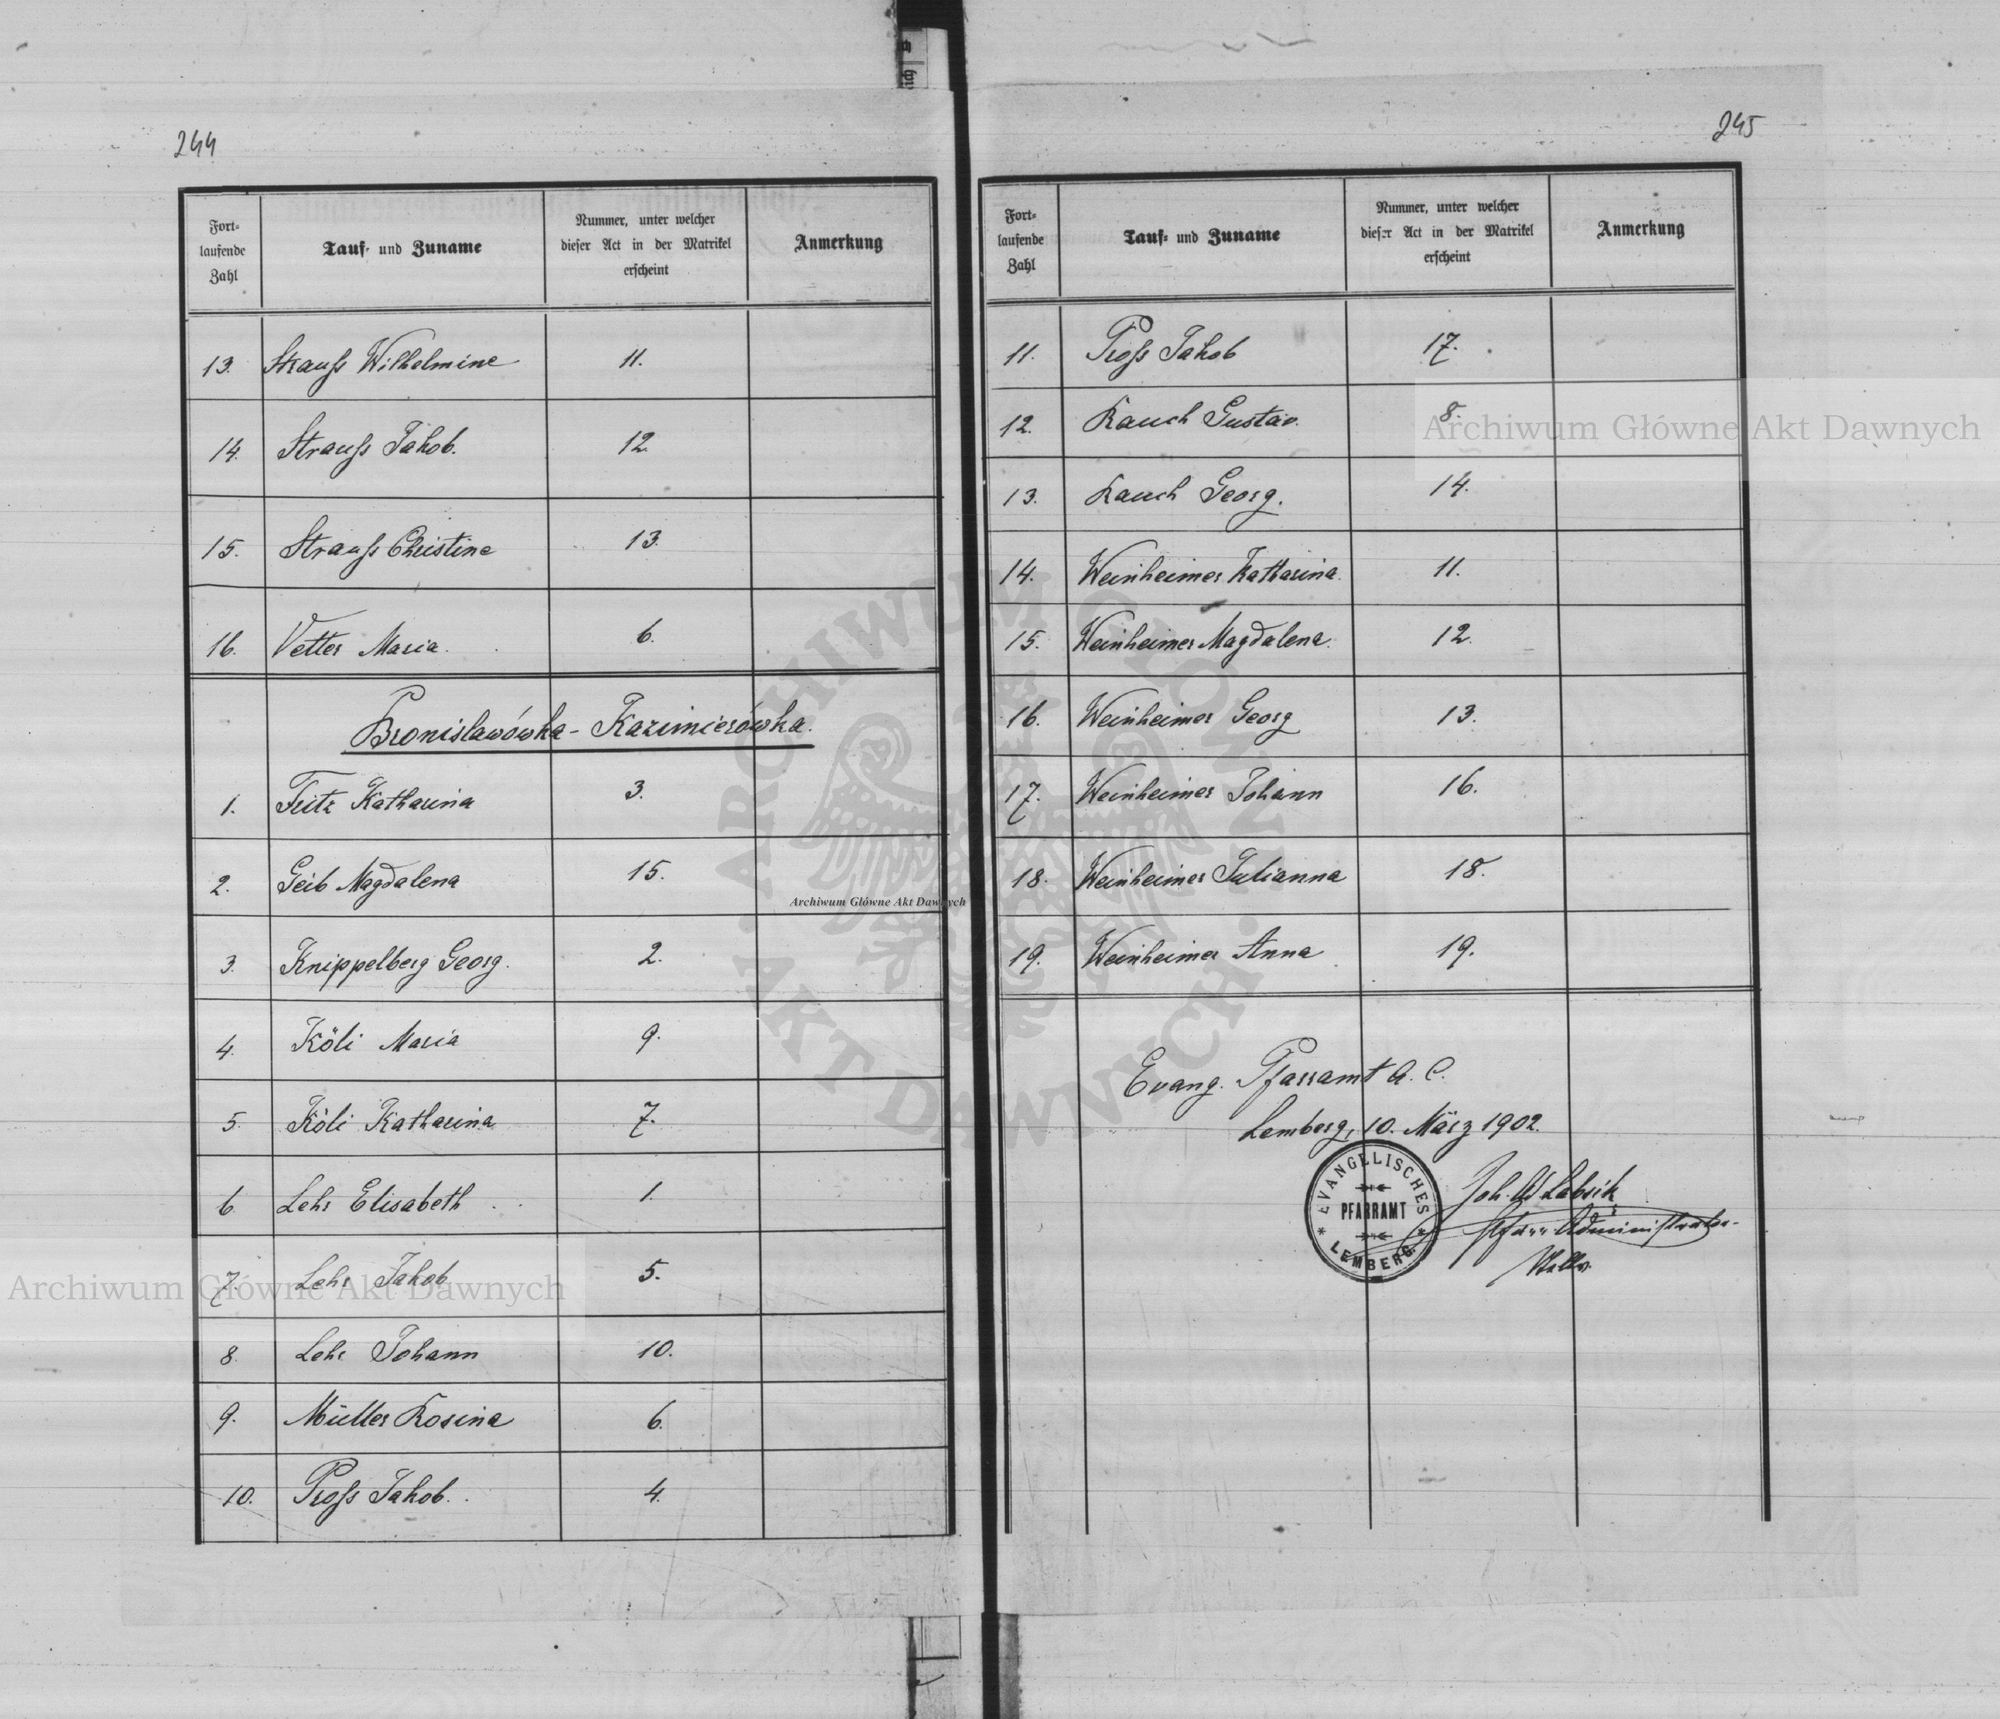 244
Fort-
laufende
Zahl
Tauf- und Zuname
Nummer, unter welcher
dieser Act in der Matrikel
erscheint
Anmerkung
13. Strauß Wilhelmine 11.
14. Strauß Jakob. 12.
15. Strauß Christine 13.
16. Vetter Maria. 6.
Bronisławówka - Kazimierówka.
1. Fritz Katharina 3.
2. Geib Magdalena 15.
3. Knippelberg Georg. 2.
4. Köli Maria 9.
5. Köli Katharina 7.
6. Lehr Elisabeth 1.
7. Lehr Jakob 5.
8. Lehr Johann 10.
9. Müller Rosina 6.
10. Proß Jakob. 4.
245
Fort-
laufende
Zahl
Tauf- und Zuname
Nummer, unter welcher
dieser Act in der Matrikel
erscheint
Anmerkung
11. Proß Jakob 17.
12. Rauch Gustav. 8.
13. Rauch Georg. 14.
14. Weinheimer Katharina. 11.
15. Weinheimer Magdalena. 12.
16. Weinheimer Georg 13.
17. Weinheimer Johann 16.
18. Weinheimer Julianna 18.
19. Weinheimer Anna 19.
Evang. Pfarramt A. C.
Lemberg, 10. März 1902.
EVANGELISCHES
PFARRAMT
LEMBERG
Joh.
Pfarr-Administrator
Archiwum Główne Akt Dawnych
Archiwum Główne Akt Dawnych
Archiwum Główne Akt Dawnych
ARCHIWUM GŁÓWNE
AKT DAWNYCH